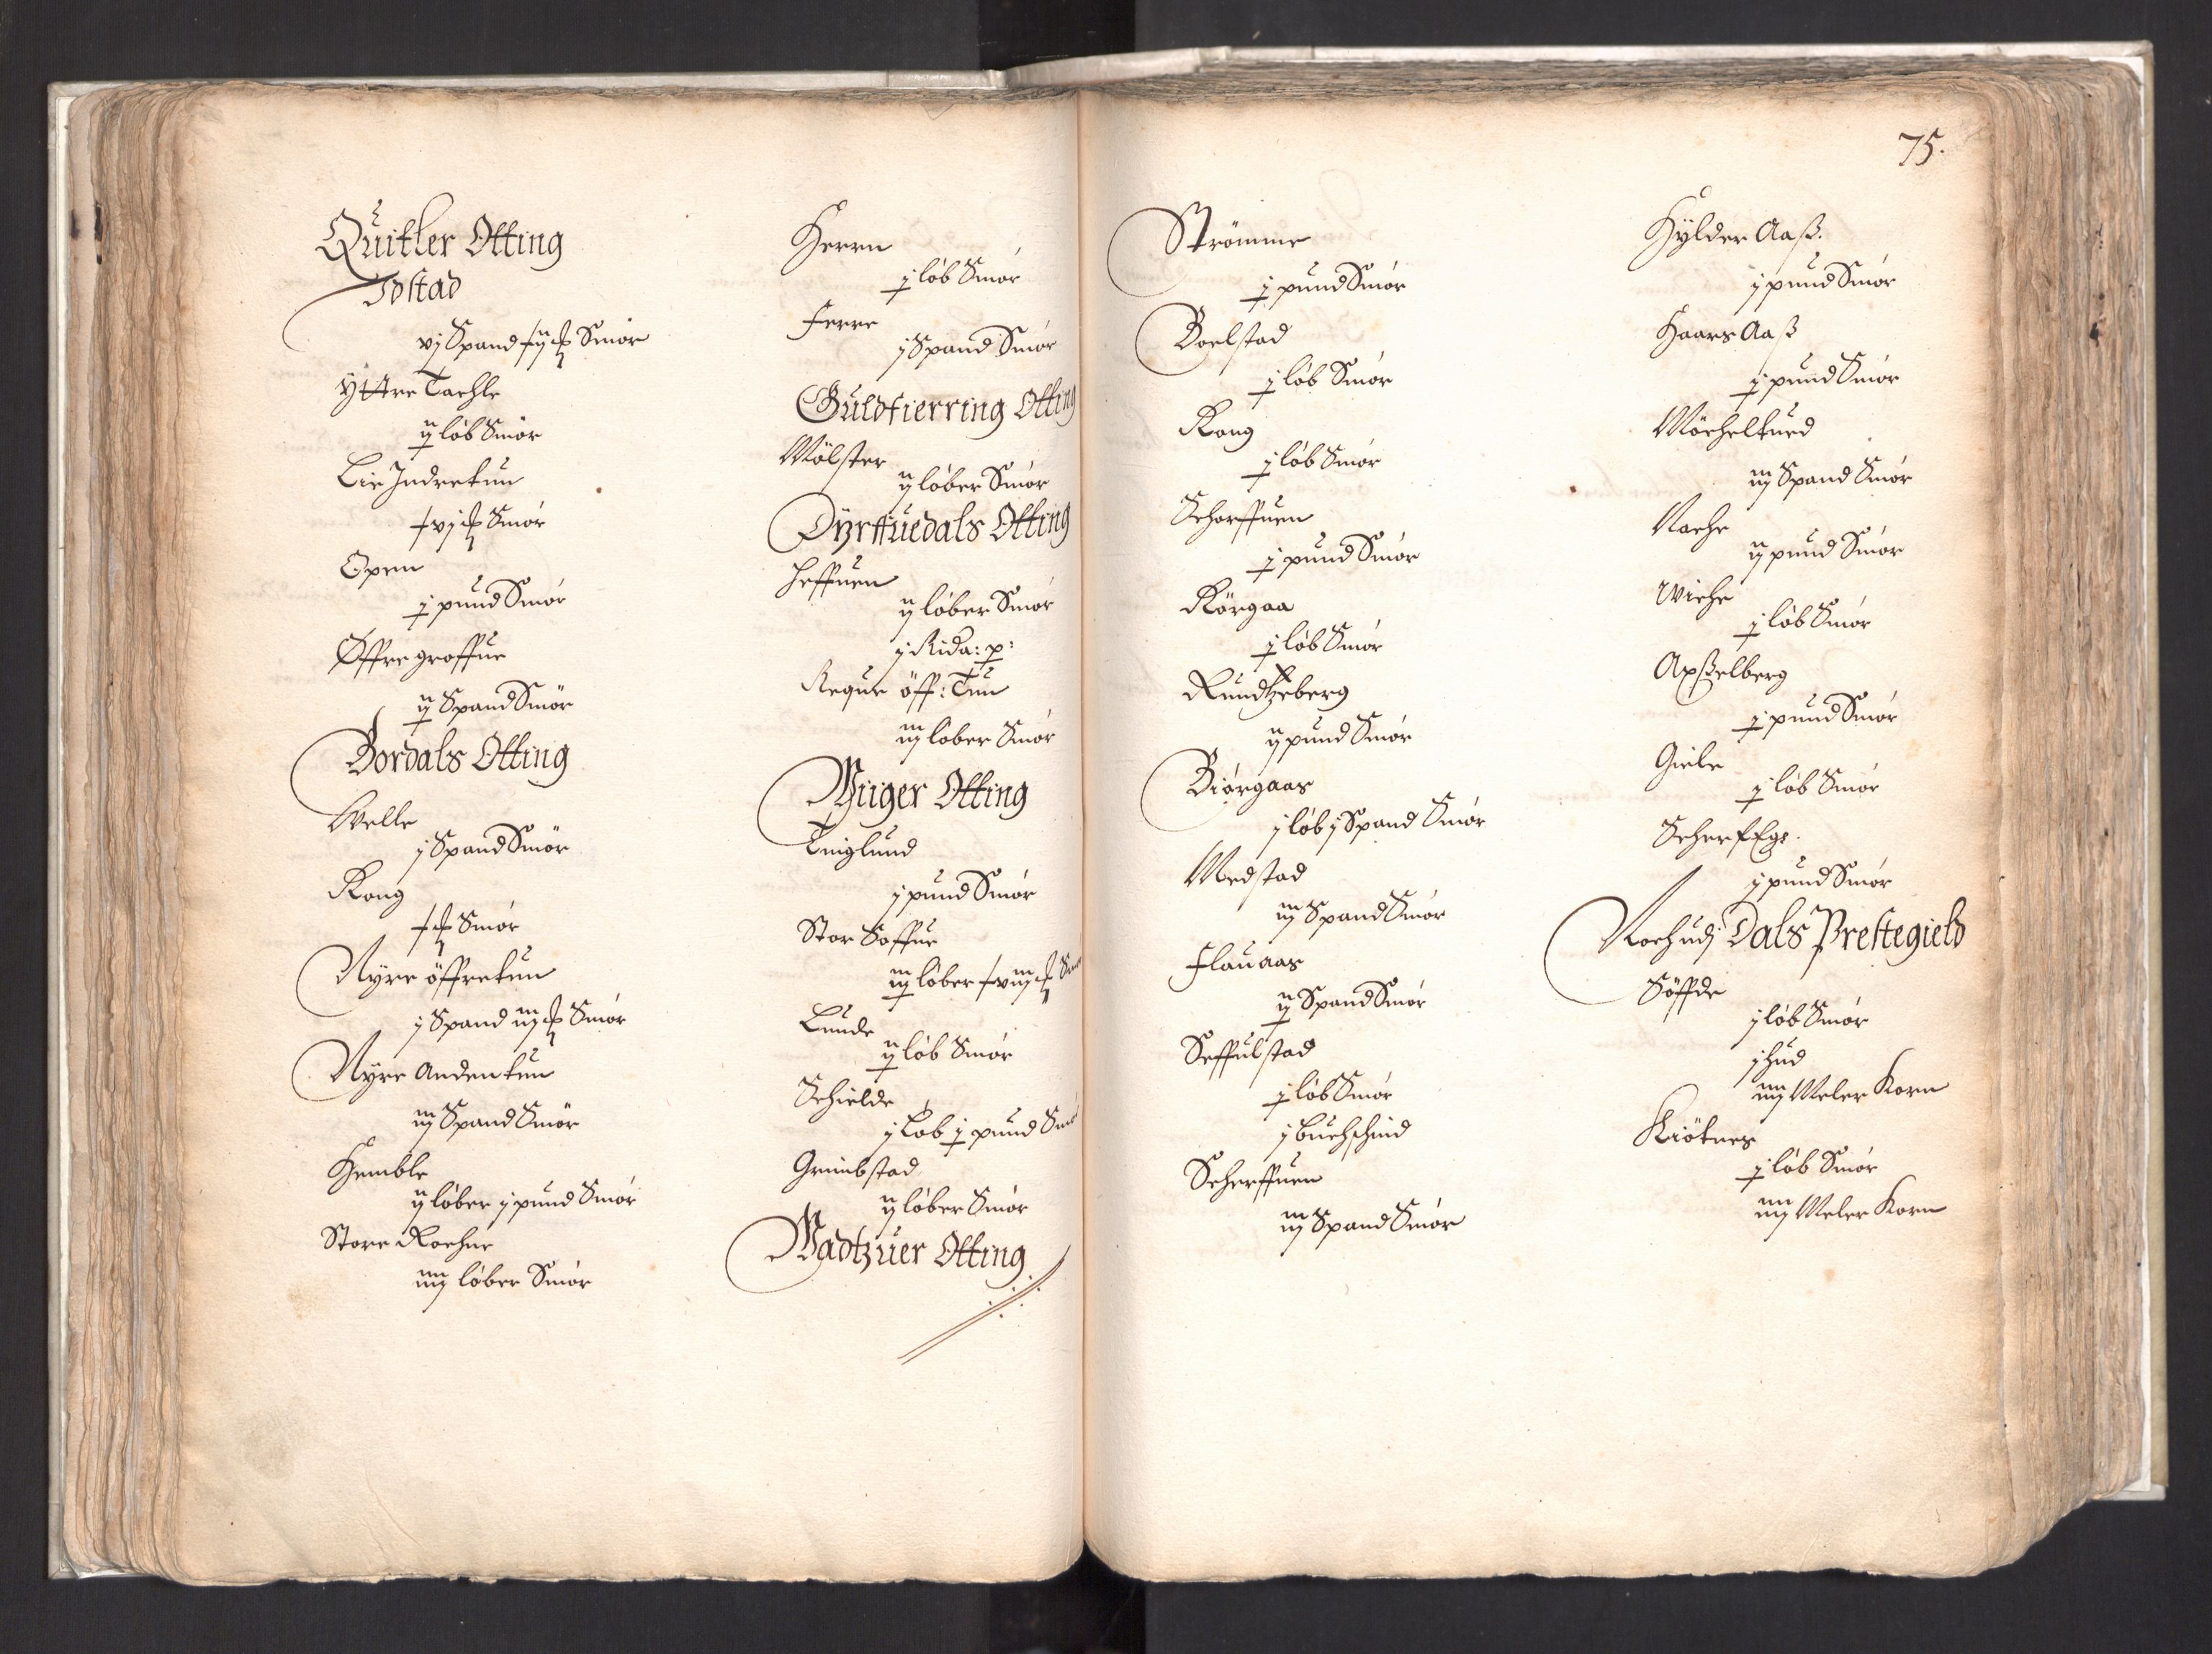 Quitler Otting
Idstad
vj Spand ij Smör
Yttre Taehle
ij löb Smör
Lie Indretun
vj Smör
Opem
j pund Smör
Öffregroffue
ij Spand Smör
Bordals Otting
Velle
j Spand Smör
Rong
Smör
Nyre öffretun
j Spand iij Smör
Nyre Andentun
iij Spand Smör
Hemble
ij löber j pund Smör
Store Roehne
iiij löber Smör
Herrn
j löb Smör
Ferre
j Spand Smör
Guldfierring Otting
Mölster
ij löber Smör
Dyrffuedals Otting
Heffuen
ij löber Smör
j Rida: p:
Reque öff: Tun
iij löber Smör
Wiger Otting
Tinglund
j pund Smör
Stor Soffue
iij löber
Lunde
ij löb Smör
Schielde
j Löb j pund
Grimbstad
ij löber Smör
Wadtzuer Otting
75.
Strömme
j pund Smör
Boelstad
j löb Smör
Rong
j löb Smör
Schorffuen
j pund Smör
Rörgaa
j löb Smör
Rundtzeberg
ij pund Smör
Biörgaas
j löb j Spand Smör
Medstad
iij Spand Smör
Flauaas
ij Spand Smör
Seffulstad
j löb Smör
j Buchschind
Scherffuen
iij Spand Smör
Hylder Aaß.
j pund Smör
Haars Aaß
j pund Smör
Möchelturd
iij Spand Smör
Naehe
ij pund Smör
Wiche
j löb Smör
Apßelberg
j pund Smör
Giele
j löb Smör
Scherffegr.
j pund Smör
Dals Prestegield
Söffde
j löb Smör
j Hud
iiij Meler Korn
Kiötnes
j löb Smör
iiij Meler Korn